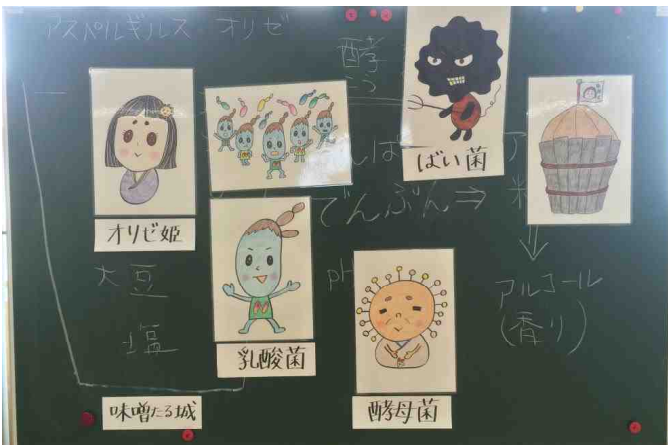 アスペルギルス オリゼ
酵
こう
ばい菌
でんぷん⇒
米
オリゼ姫
大豆
塩
乳酸菌
pH
アルコール
(香り)
味噌たる城
酵母菌